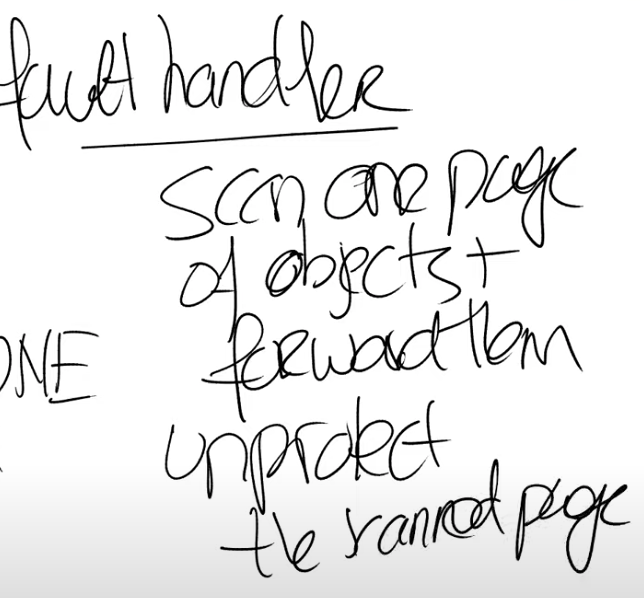 fault handler
scan one page
of objects +
forward them
ONE
unprotect
the scanned page